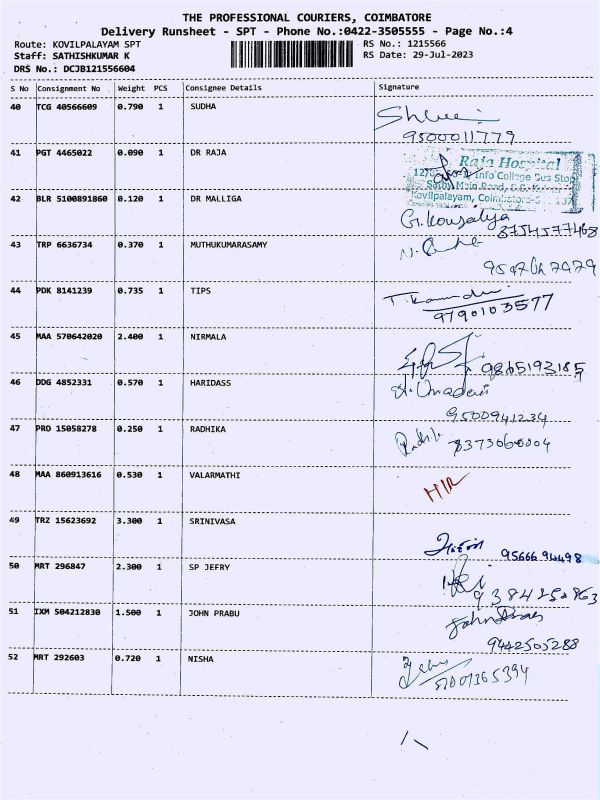 THE PROFESSIONAL COURIERS, COIMBATORE
Delivery Runsheet - SPT - Phone No.:0422-3505555 - Page No.:4
Route: KOVILPALAYAM SPT
RS No.: 1215566
Staff: SATHISHKUMAR K
RS Date: 29-Jul-2023
DRS No.: DCJB121556604
S No Consignment No Weight PCS Consignee Details Signature
40 TCG 40566609 0.790 1 SUDHA
9500011779
41 PGT 4465022 0.090 1 DR RAJA
Raja Hospital
Info College Bus Stop
Sathy Main Road,
Kovilpalayam, Coimbatore-
42 BLR 5100891860 0.120 1 DR MALLIGA
G. Kousalya
8754577468
43 TRP 6636734 0.370 1 MUTHUKUMARASAMY
44 PDK 8141239 0.735 1 TIPS
9790103577
45 MAA 570642020 2.400 1 NIRMALA
9865193185
46 DDG 4852331 0.570 1 HARIDASS
Umadevi
9500941234
47 PRO 15058278 0.250 1 RADHIKA
8373060004
48 MAA 860913616 0.530 1 VALARMATHI
49 TRZ 15623692 3.300 1 SRINIVASA
95666 94498
50 MRT 296847 2.300 1 SP JEFRY
51 IXM 504212830 1.500 1 JOHN PRABU
John
9442505288
52 MRT 292603 0.720 1 NISHA